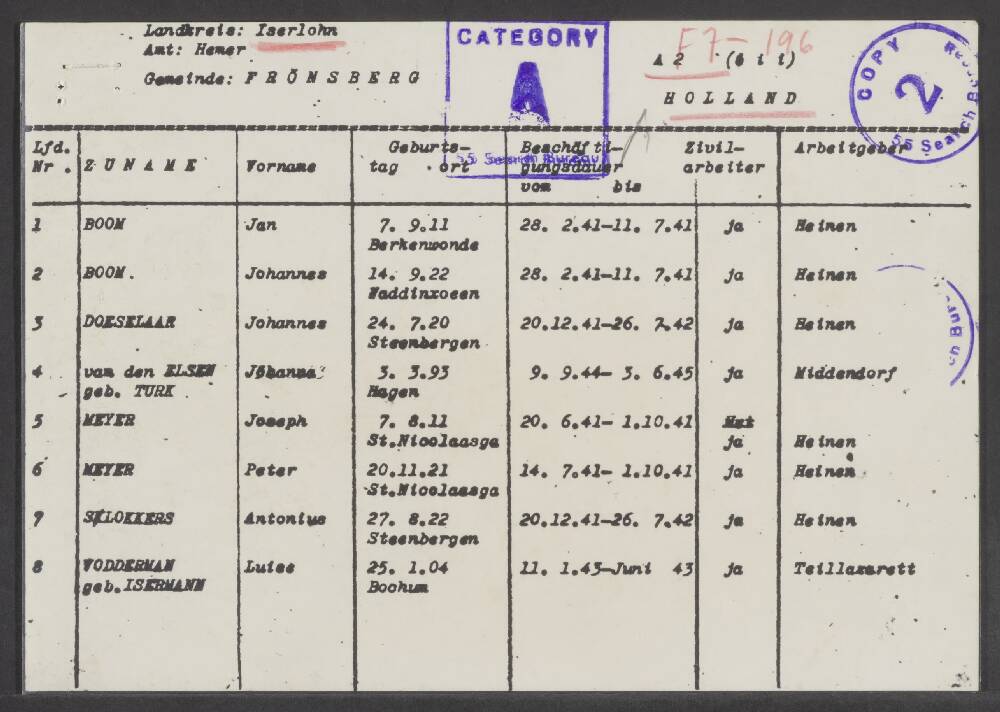 Landkreis: Iserlohn
Amt: Hemer
Gemeinde: FRÖNSBERG
CATEGORY
A
55 Search Bureau
F7-196
A 2
HOLLAND
COPY
2
55 Search B
Lfd. Nr. ZUNAME Vorname Geburts- tag ort Beschäfti- gungsdauer vom bis Zivil- arbeiter Arbeitgeber
1 BOOM Jan 7. 9.11 28. 2.41-11. 7.41 ja Heinen
Berkenwonde
2 BOOM. Johannes 14. 9.22 28. 2.41-11. 7.41 ja Heinen
Waddinxoeen
3 DOESELAAR Johannes 24. 7.20 20.12.41-26. 7.42 ja Heinen
Steenbergen
4 van den ELSEN Johanna 3. 3.93 9. 9.44- 3. 6.45 ja Middendorf
geb. TURK Hagen
5 MEYER Joseph 7. 8.11 20. 6.41- 1.10.41
St.Nicolaasga ja Heinen
6 MEYER Peter 20.11.21 14. 7.41- 1.10.41 ja Heinen
St.Nicolaasga
7 SKLOKKERS Antonius 27. 8.22 20.12.41-26. 7.42 ja Heinen
Steenbergen
8 VODDERMAN Luise 25. 1.04 11. 1.43-Juni 43 ja Teillazarett
geb.ISERMANN Bochum
ch Bur